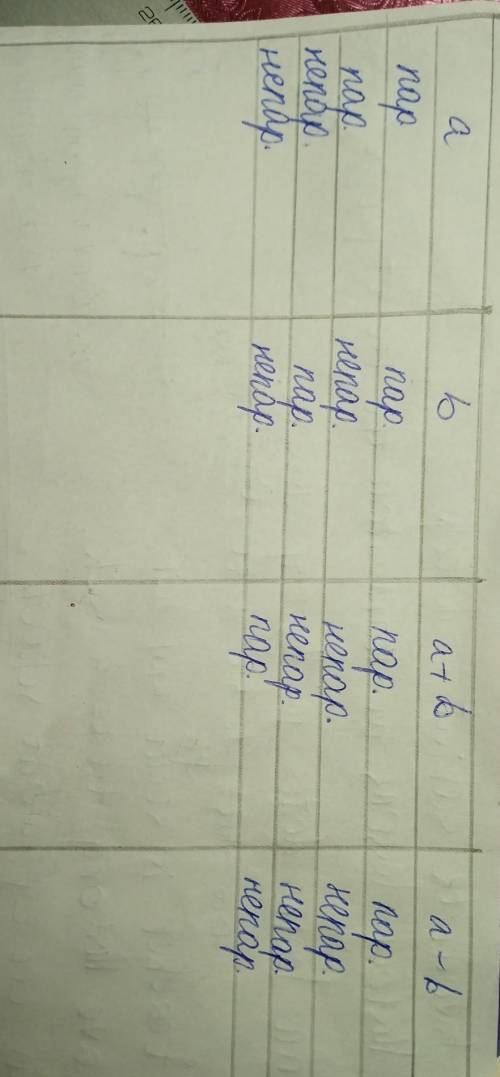 a b a+b a-b
пар пар. пар. пар.
пар. непар. непар. непар.
непар. пар. непар. непар.
непар. непар. пар. непар.